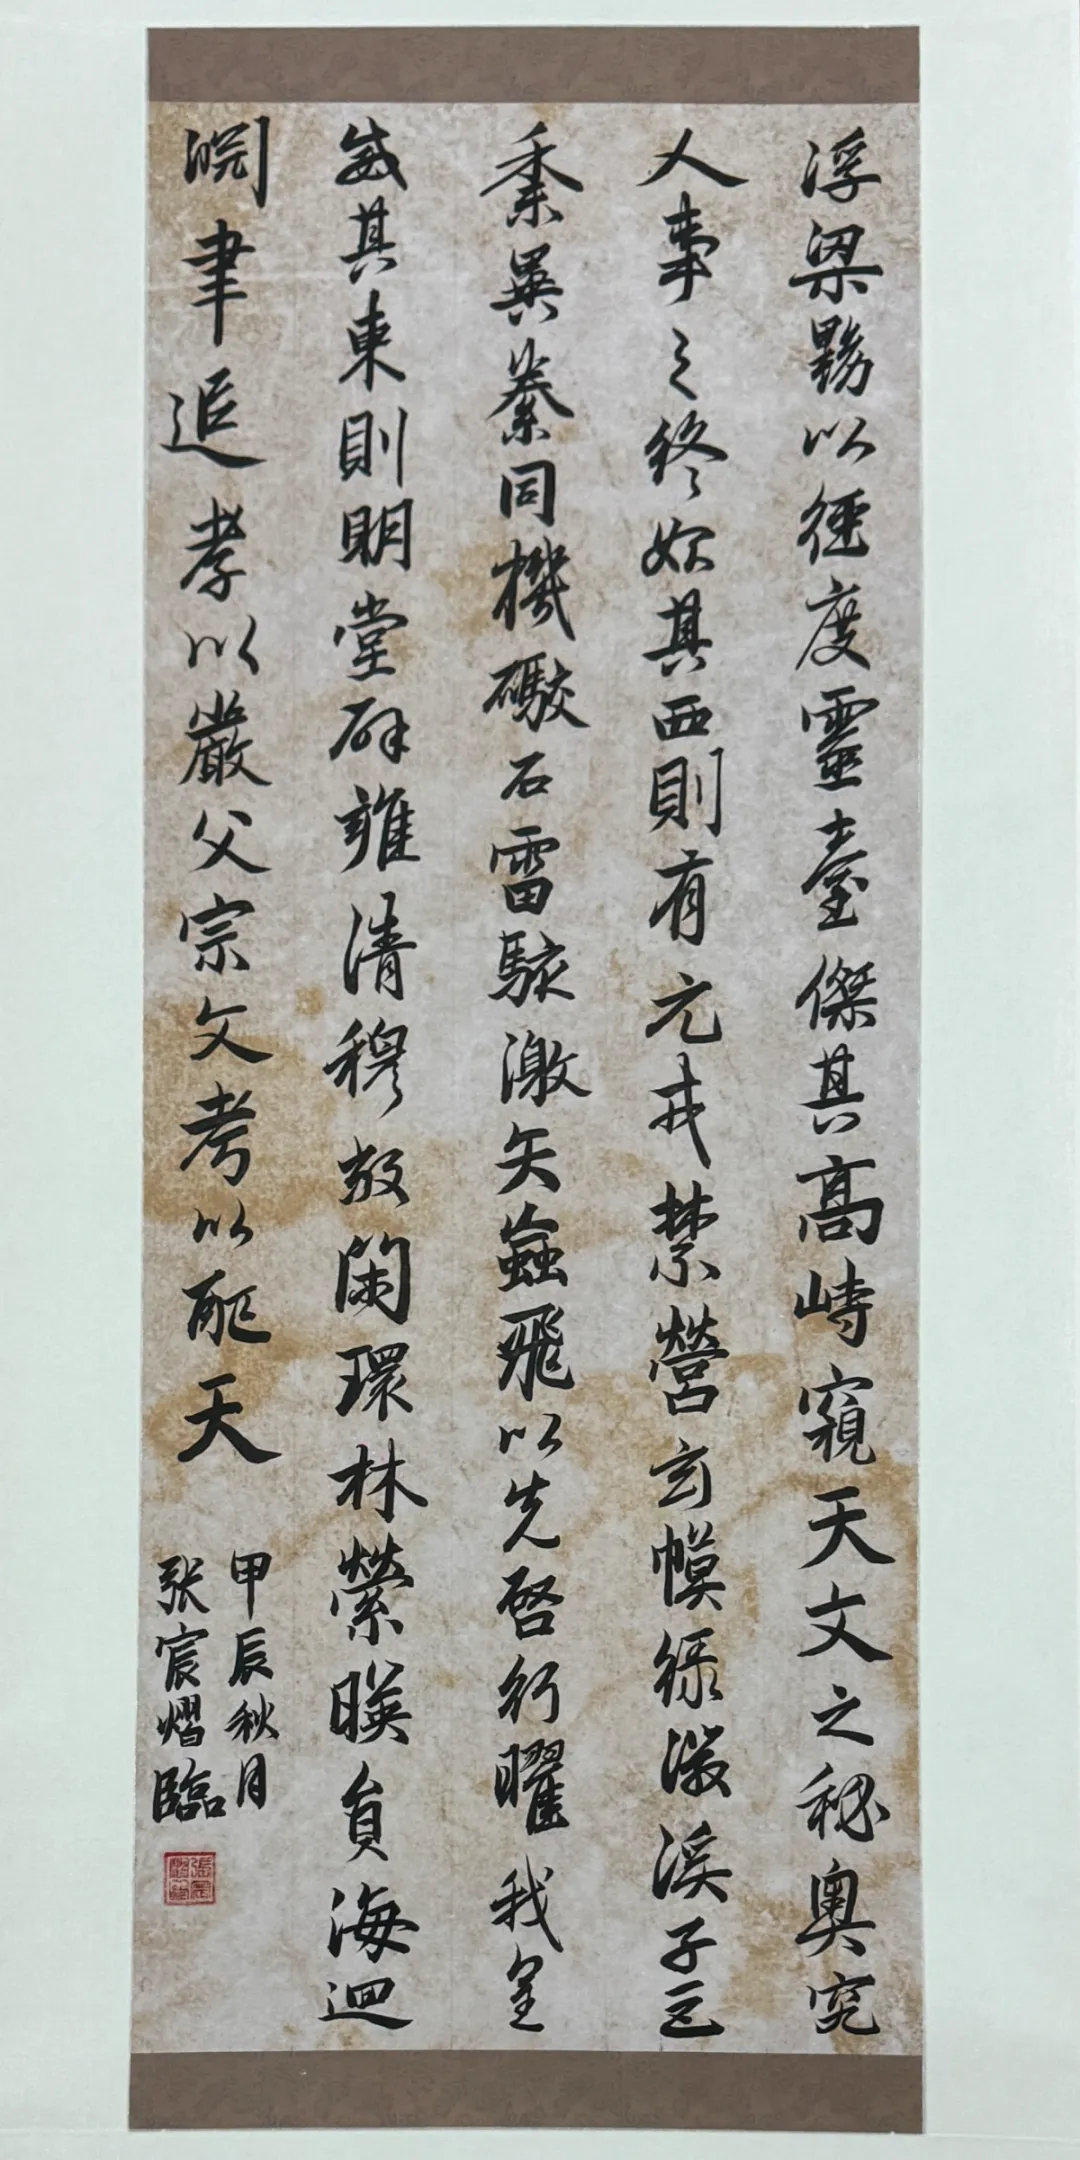 浮梁黝以徑度靈臺傑其高峙窺天文之秘奧究
人事之終始其西則有元戎禁營玄幙綠徽溪子巨
黍異絭同機礮石雷駭激矢蝱飛以先啓行曜我皇
威其東則明堂辟雍清穆敞閑環林縈暎員海迴
淵聿追孝以嚴父宗文考以配天
甲辰秋月
张宸熠臨